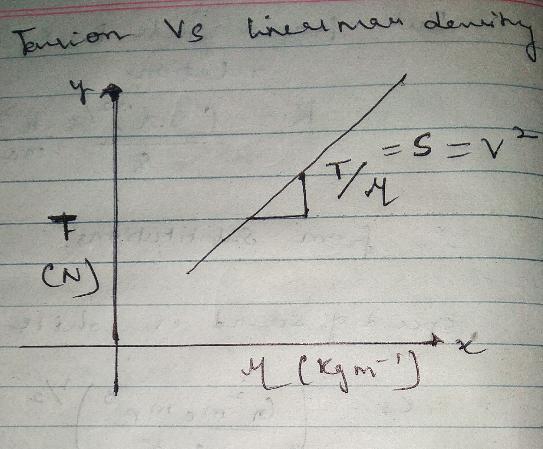 Tension Vs linear mass density
y
T/μ = S = V²
T
(N)
μ (Kgm⁻¹)
x